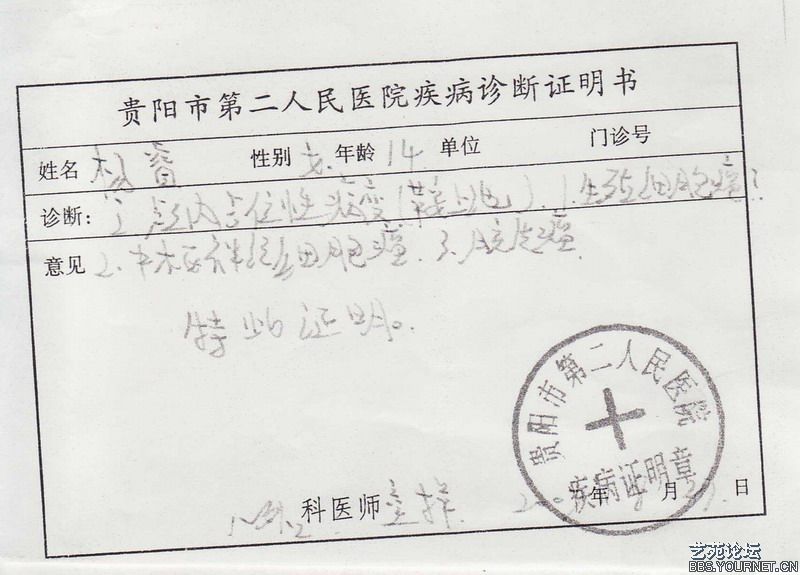 贵阳市第二人民医院疾病诊断证明书
姓名 杨睿 性别 女 年龄 14 单位 门诊号
诊断: 颅内占位性病变(鞍上池). 1. 生殖细胞瘤?
意见 2. 中枢神经细胞瘤. 3. 胶质瘤.
特此证明。
贵阳市第二人民医院
疾病证明章
科医师 年 月 日
艺苑论坛
BBS.YOURNET.CN